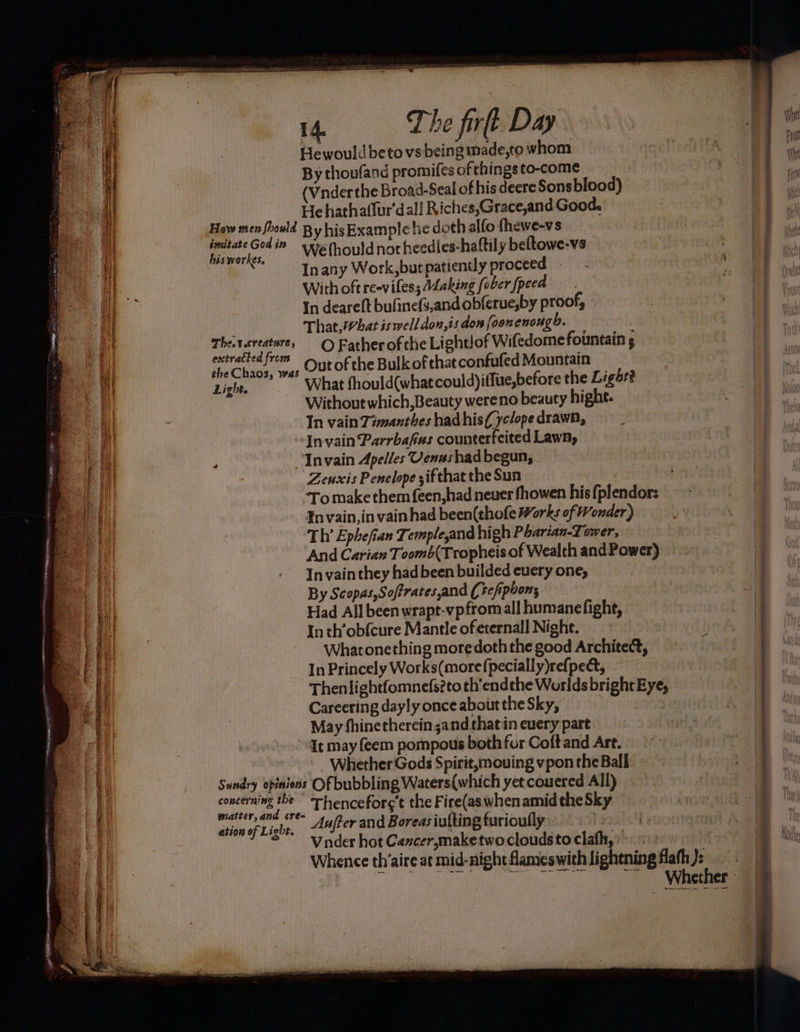 14. The firſt Day
He would be to vs being made, to whom
By thouſand promiſes of things to-come
(Vnder the Broad-Seal of his deere Sons blood)
He hath aſſur'd all Riches, Grace, and Good.
How men ſhould imitate God in his workes.
By his Example he doth alſo ſhewe-vs
We ſhould not heedles-haſtily beſtowe-vs
In any Work, but patiently proceed
With oft re-viſes; Making ſober ſpeed
In deareſt buſineſs, and obſerue, by proof,
That, What is well don, is don ſoon enough.
The. 1. creature, extracted from the Chaos, was Light.
O Father of the Light! of Wiſedome fountain;
Out of the Bulk of that confuſed Mountain
What ſhould (what could) iſſue, before the Light?
Without which, Beauty were no beauty hight.
In vain Timanthes had his Cyclope drawn,
In vain Parrhaſius counterfeited Lawn,
In vain Apelles Venus had begun,
Zeuxis Penelope; if that the Sun
To make them ſeen, had neuer ſhowen his ſplendor:
In vain, in vain had been (thoſe Works of Wonder)
Th' Epheſian Temple, and high Pharian-Tower,
And Carian Toomb (Tropheis of Wealth and Power)
In vain they had been builded euery one,
By Scopas, Soſtrates, and Cteſiphon;
Had All been wrapt-vp from all humane ſight,
In th'obſcure Mantle of eternall Night.
What one thing more doth the good Architect,
In Princely Works (more ſpecially) reſpect,
Then lightſomneſs? to th'end the Worlds bright Eye,
Careering dayly once about the Sky,
May ſhine therein; and that in euery part
It may ſeem pompous both for Coſt and Art.
Sundry opinions concerning the matter, and creation of Light.
Whether Gods Spirit, mouing vpon the Ball
Of bubbling Waters (which yet couered All)
Thence forg't the Fire (as when amid the Sky
Auſter and Boreas iuſting furiouſly
Vnder hot Cancer, make two clouds to claſh,
Whence th'aire at mid-night flames with lightning flaſh):
Whether